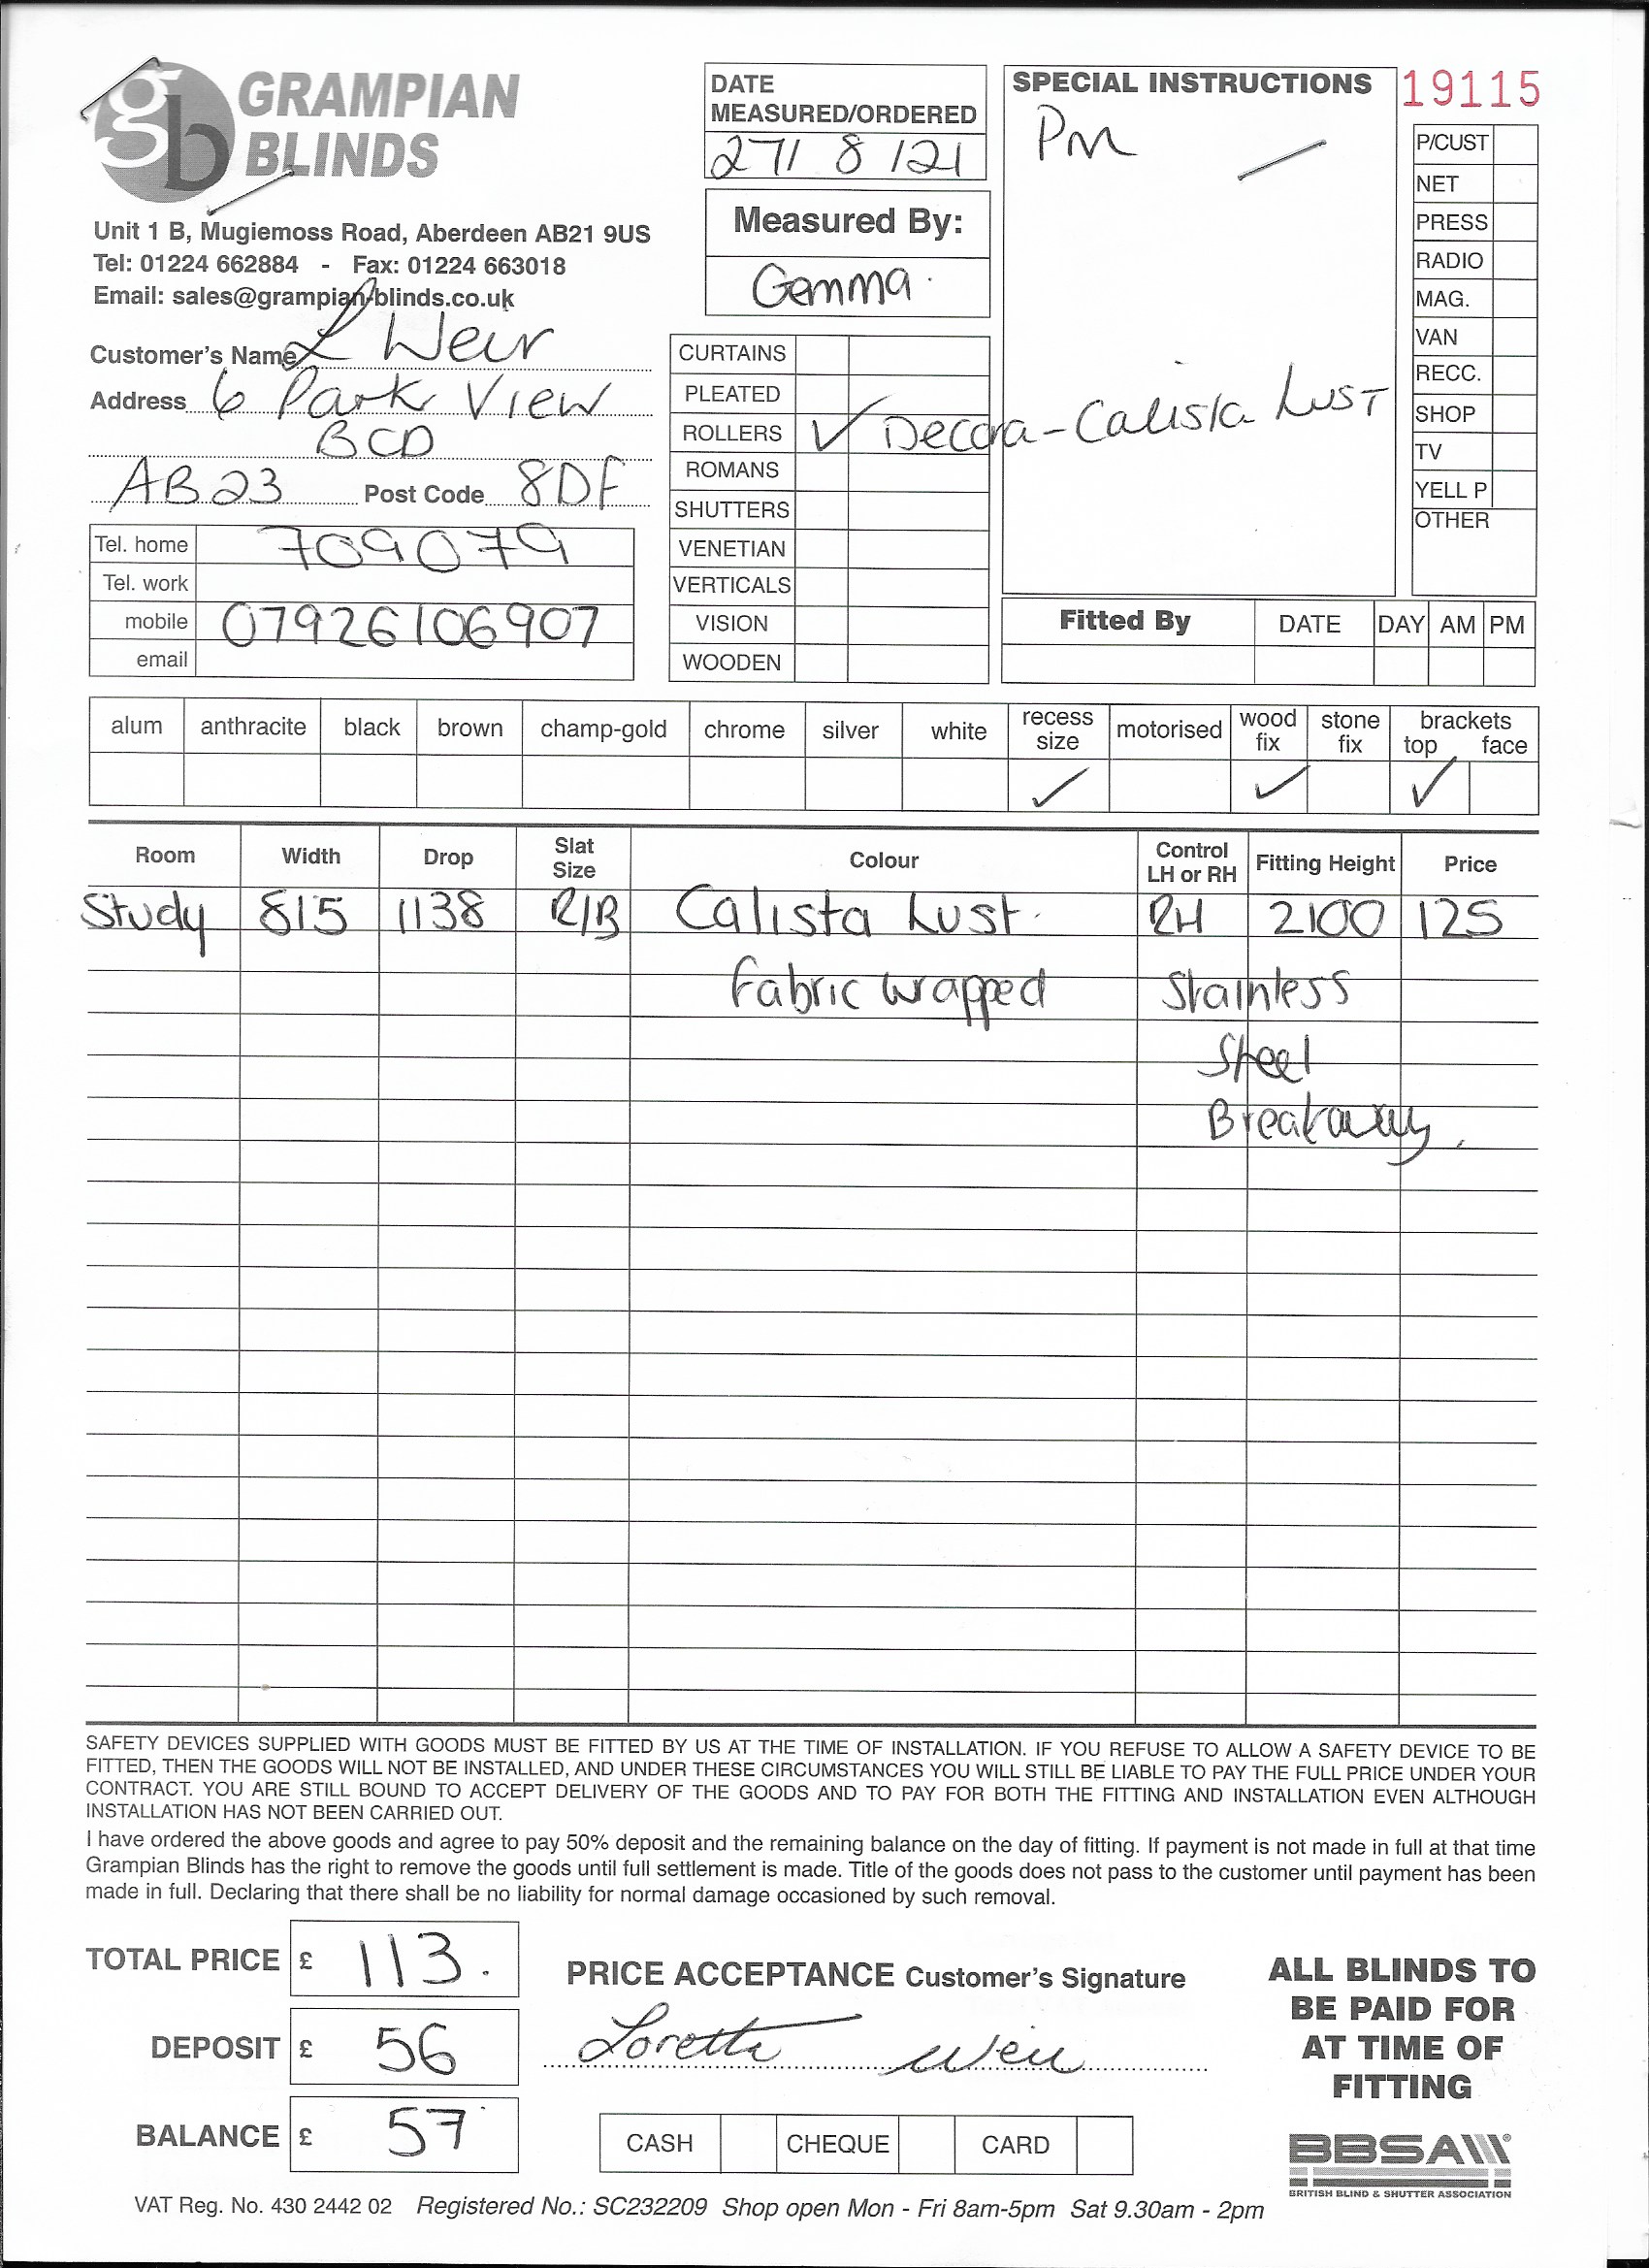 gb GRAMPIAN
BLINDS
Unit 1 B, Mugiemoss Road, Aberdeen AB21 9US
Tel: 01224 662884 - Fax: 01224 663018
Email: sales@grampian-blinds.co.uk
Customer's Name L Weir
Address 6 Park View
BCD
AB23 Post Code 8DF
Tel. home 709079
Tel. work
mobile 07926106907
email
DATE
MEASURED/ORDERED
27/ 8 /21
Measured By:
Gemma
CURTAINS
PLEATED
ROLLERS ✓ Decora-Calista Lust
ROMANS
SHUTTERS
VENETIAN
VERTICALS
VISION
WOODEN
SPECIAL INSTRUCTIONS
Pm
19115
P/CUST
NET
PRESS
RADIO
MAG.
VAN
RECC.
SHOP
TV
YELL P
OTHER
Fitted By DATE DAY AM PM
alum anthracite black brown champ-gold chrome silver white recess size motorised wood fix stone fix brackets top face
✓ ✓ ✓
Room Width Drop Slat Size Colour Control LH or RH Fitting Height Price
Study 815 1138 R/B Calista Lust. RH 2100 125
Fabric wrapped Stainless
Steel
Breakaway.
SAFETY DEVICES SUPPLIED WITH GOODS MUST BE FITTED BY US AT THE TIME OF INSTALLATION. IF YOU REFUSE TO ALLOW A SAFETY DEVICE TO BE
FITTED, THEN THE GOODS WILL NOT BE INSTALLED, AND UNDER THESE CIRCUMSTANCES YOU WILL STILL BE LIABLE TO PAY THE FULL PRICE UNDER YOUR
CONTRACT. YOU ARE STILL BOUND TO ACCEPT DELIVERY OF THE GOODS AND TO PAY FOR BOTH THE FITTING AND INSTALLATION EVEN ALTHOUGH
INSTALLATION HAS NOT BEEN CARRIED OUT.
I have ordered the above goods and agree to pay 50% deposit and the remaining balance on the day of fitting. If payment is not made in full at that time
Grampian Blinds has the right to remove the goods until full settlement is made. Title of the goods does not pass to the customer until payment has been
made in full. Declaring that there shall be no liability for normal damage occasioned by such removal.
TOTAL PRICE £ 113.
DEPOSIT £ 56
BALANCE £ 57
PRICE ACCEPTANCE Customer's Signature
Loretta Weir
CASH CHEQUE CARD
ALL BLINDS TO
BE PAID FOR
AT TIME OF
FITTING
BBSA
BRITISH BLIND & SHUTTER ASSOCIATION
VAT Reg. No. 430 2442 02 Registered No.: SC232209 Shop open Mon - Fri 8am-5pm Sat 9.30am - 2pm